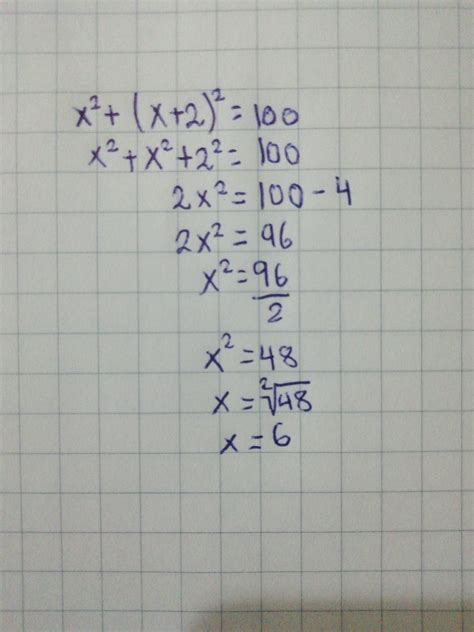 x² + (x+2)² = 100
x² + x² + 2² = 100
2x² = 100 - 4
2x² = 96
x² = 96/2
x² = 48
x = ²√48
x = 6